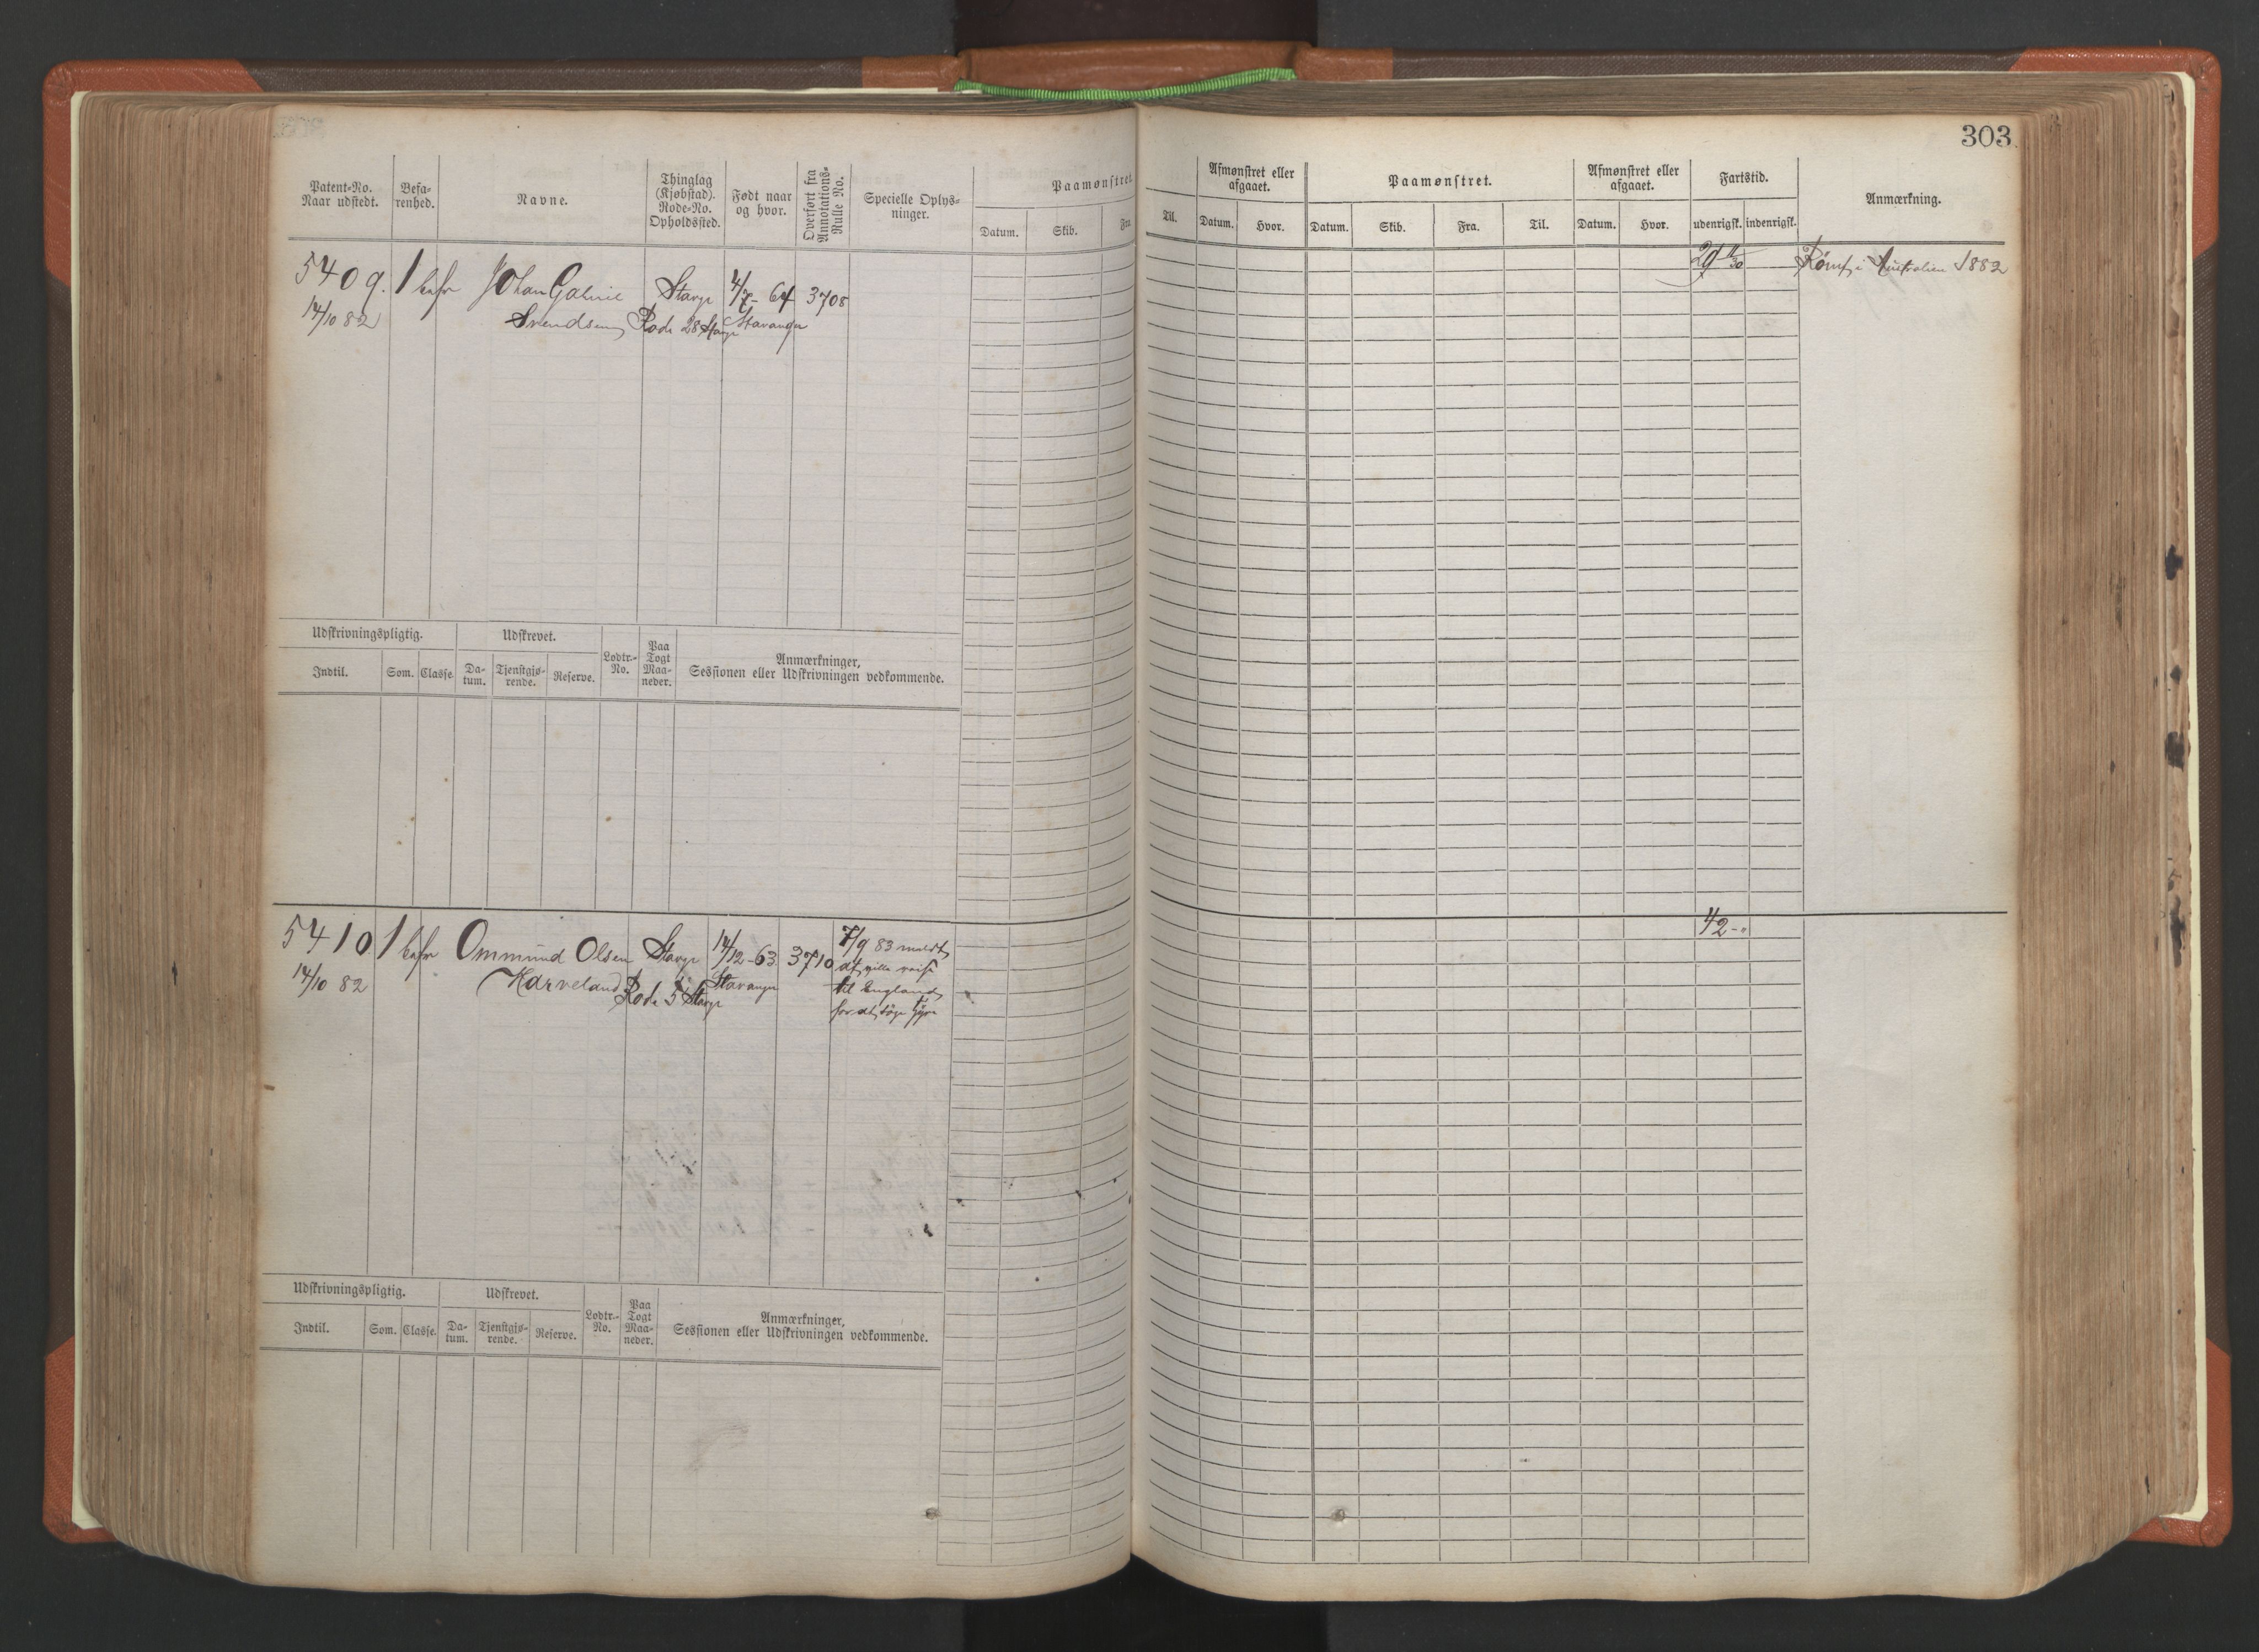 303
Patent-No. Naar udstedt. Befa-renhed. Navne. Thinglag (Kjøbstad). Rode-No. Opholdssted. Født naar og hvor. Overført fra Annotations-Rulle No. Specielle Oplys-ninger. Paamønstret.
Datum. Skib. Fra
Afmønstret eller afgaaet. Paamønstret. Afmønstret eller afgaaet. Fartstid. Anmærkning.
Til. Datum. Hvor. Datum. Skib. Fra. Til. Datum. Hvor. udenrigsk. indenrigsk.
5409. 1 befr Johan Gabriel Stavgr 4/7-64 3708
14/10 82 Svendsen Rode 28 Stavgr Stavanger
29 11/30 Rømt i Australien 1882
Udskrivningspligtig. Udskrevet. Lodtr.-No. Paa Togt Maa-neder. Anmærkninger, Sessionen eller Udskrivningen vedkommende.
Indtil. Som. Classe. Da-tum. Tjenstgjø-rende. Reserve.
5410. 1 befr Ommund Olsen Stavgr 14/12-63 3710 7/9 83 meldt
14/10 82 Karveland Rode 5 Stavgr Stavanger at ville reise
til England
for at søge Hyre
42
Udskrivningspligtig. Udskrevet. Lodtr.-No. Paa Togt Maa-neder. Anmærkninger, Sessionen eller Udskrivningen vedkommende.
Indtil. Som. Classe. Da-tum. Tjenstgjø-rende. Reserve.